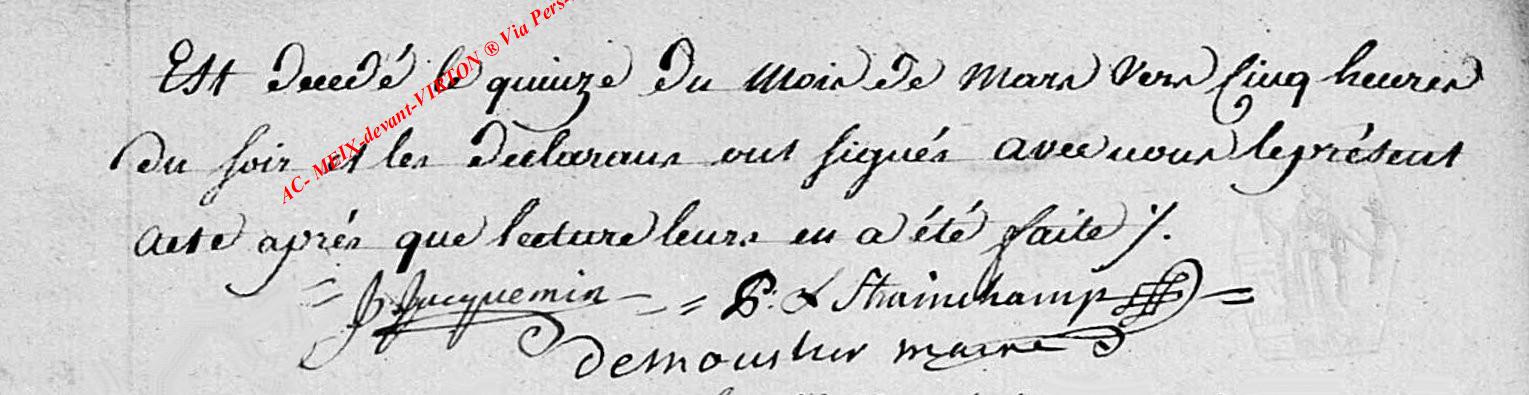 AC- MEIX-devant-VIRTON ® Via Pers-
Est decedé le quinze du mois de mars vers Cinq heures
du soir et les declarans ont signés avec nous le présent
acte après que lecture leurs en a été faite /.
= J Jacquemin = = P. L Strainchamp =
demoustier maire